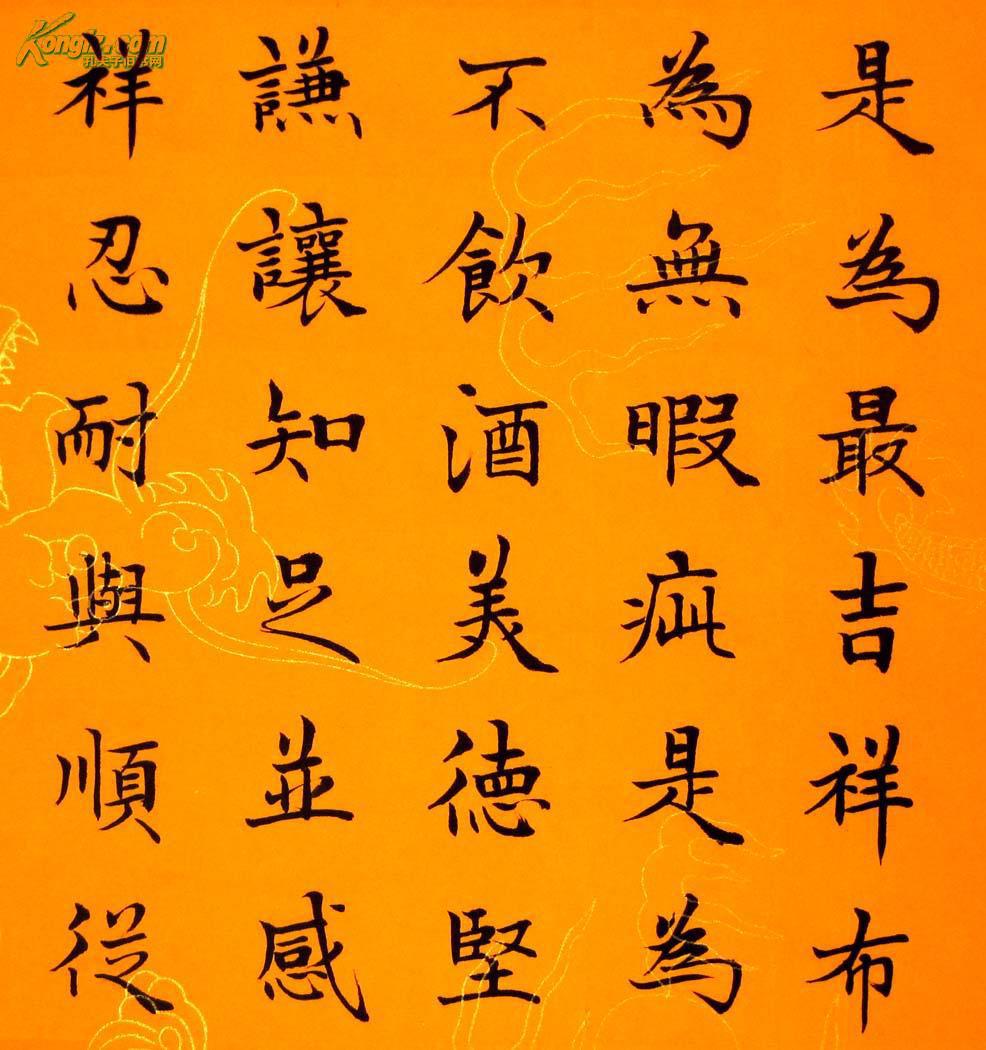 是為最吉祥布
為無暇疵是為
不飲酒美德堅
謙讓知足並感
祥忍耐與順從
Kongfz.com
孔夫子旧书网